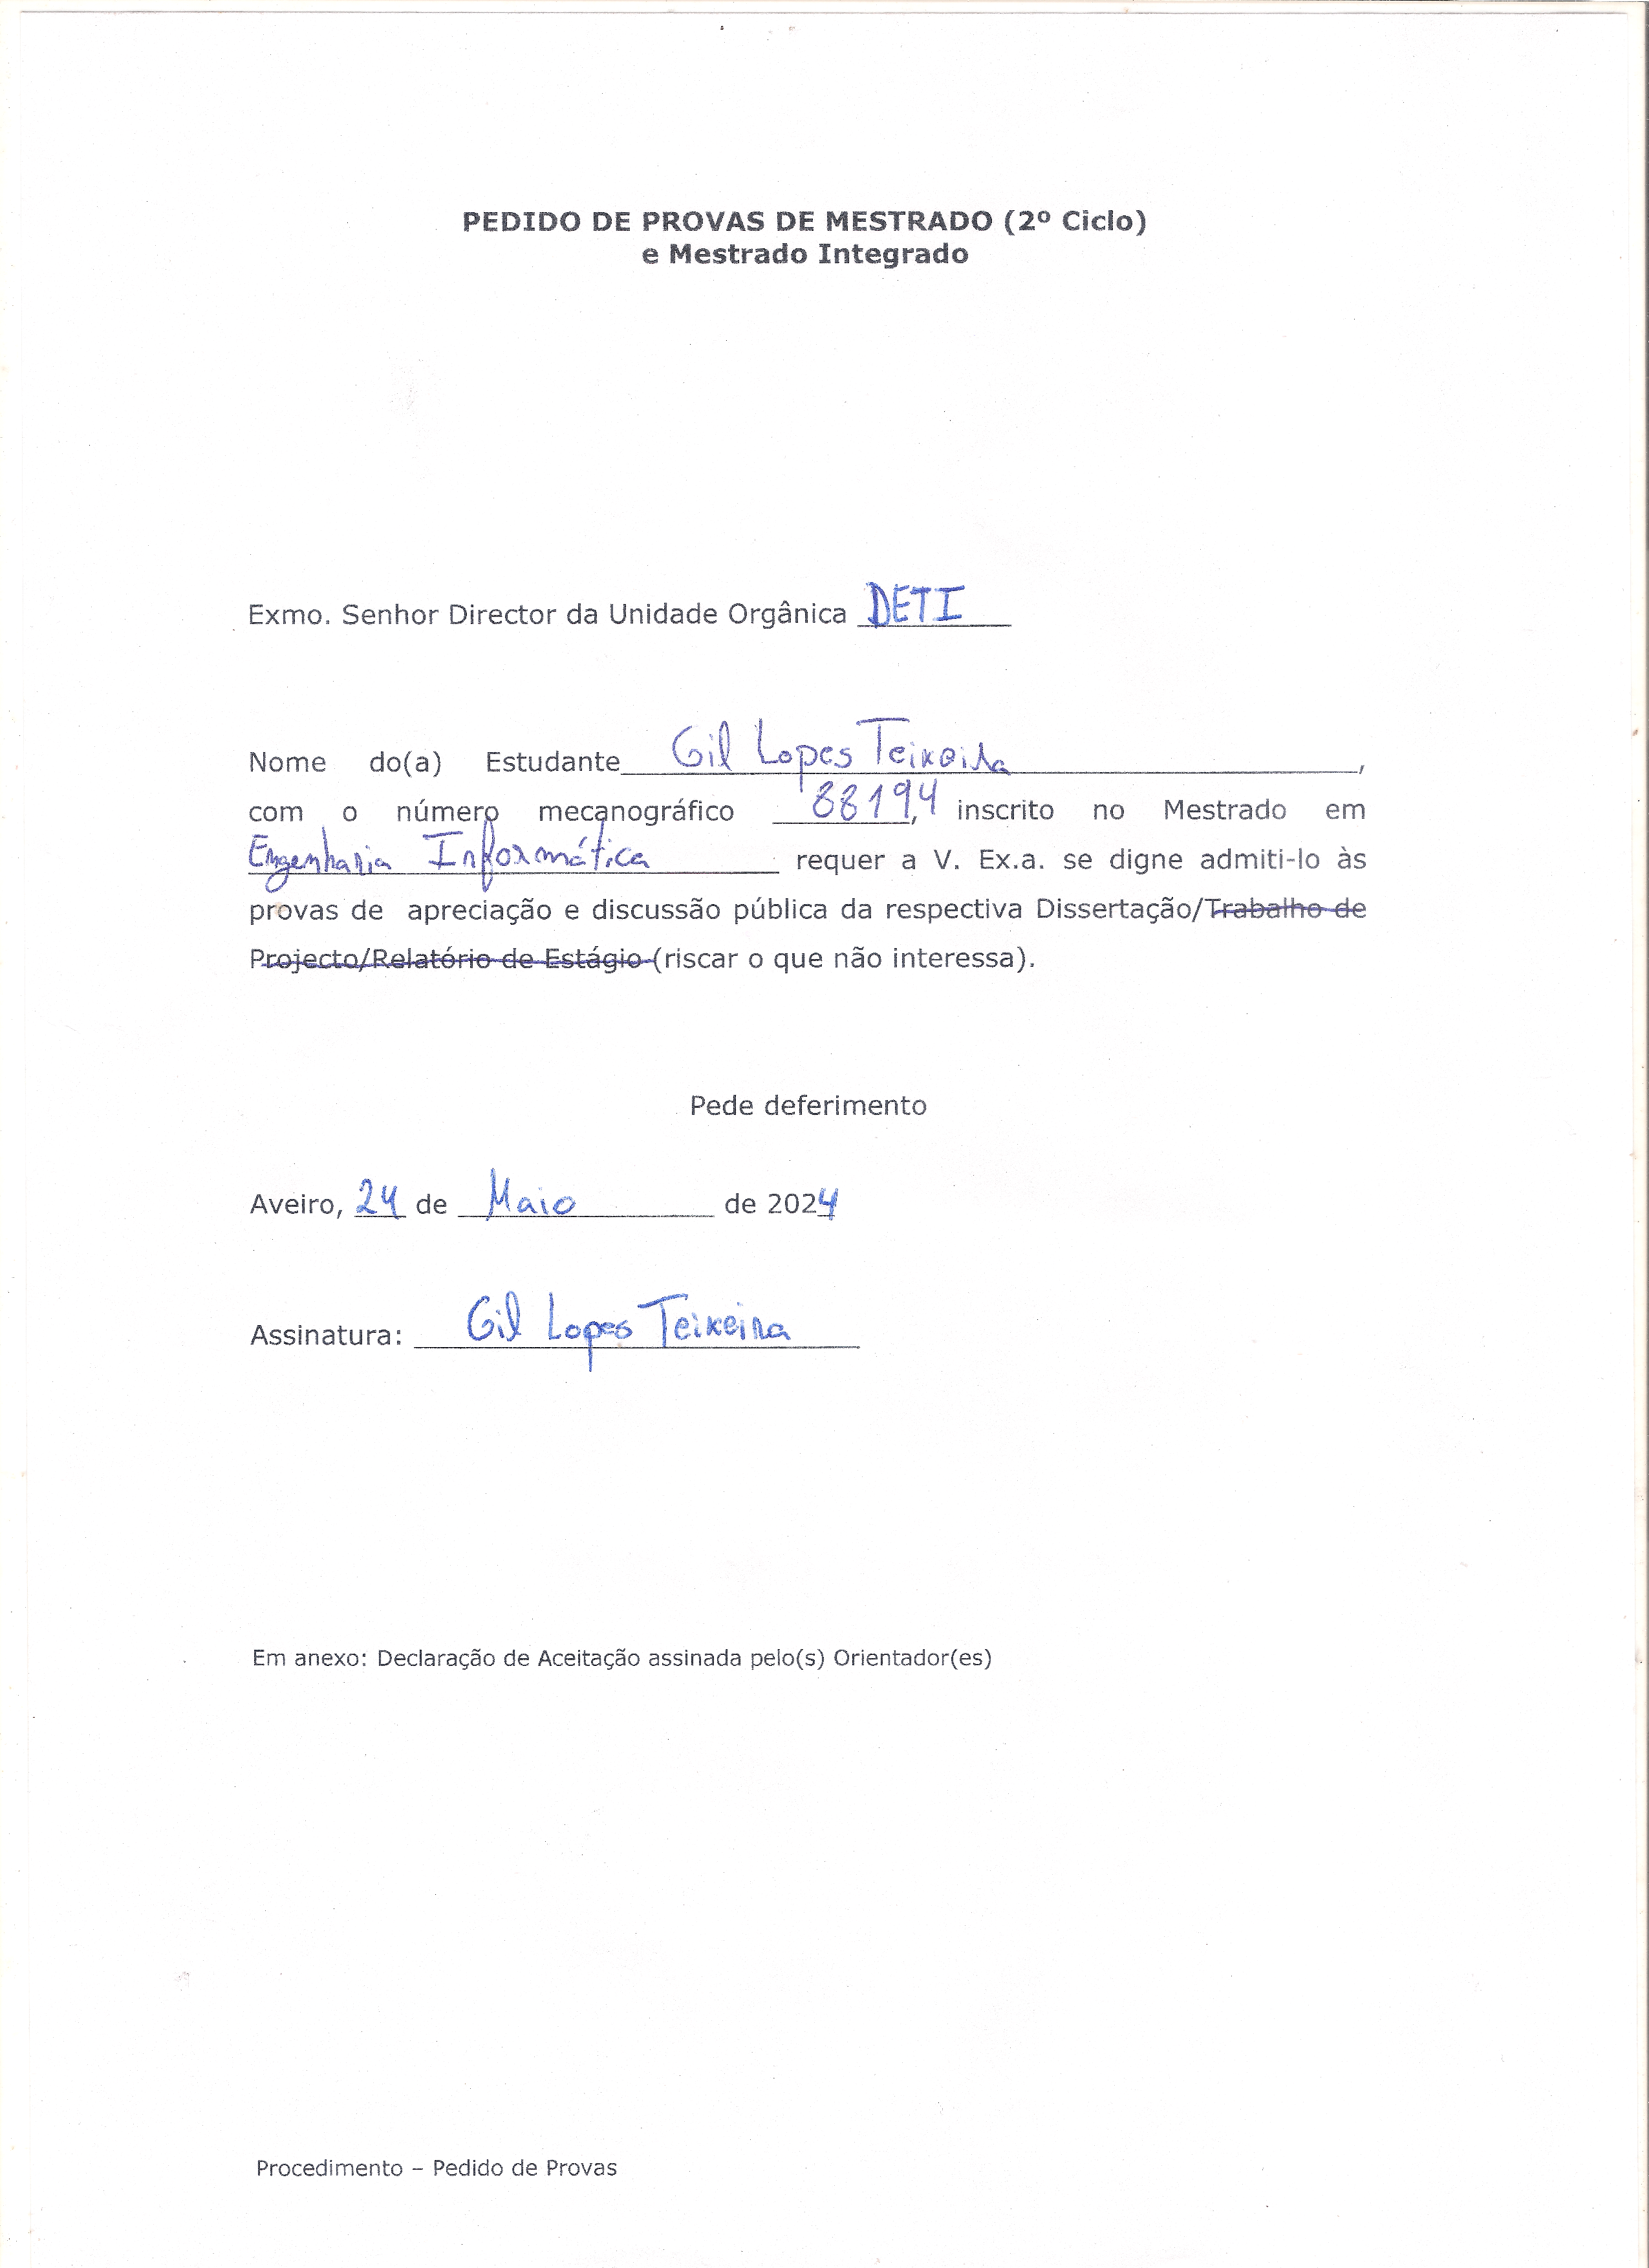 PEDIDO DE PROVAS DE MESTRADO (2º Ciclo)
e Mestrado Integrado
Exmo. Senhor Director da Unidade Orgânica DETI
Nome do(a) Estudante Gil Lopes Teixeira,
com o número mecanográfico 88194, inscrito no Mestrado em
Engenharia Informática requer a V. Ex.a. se digne admiti-lo às
provas de apreciação e discussão pública da respectiva Dissertação/Trabalho de
Projecto/Relatório de Estágio (riscar o que não interessa).
Pede deferimento
Aveiro, 24 de Maio de 2024
Assinatura: Gil Lopes Teixeira
Em anexo: Declaração de Aceitação assinada pelo(s) Orientador(es)
Procedimento – Pedido de Provas